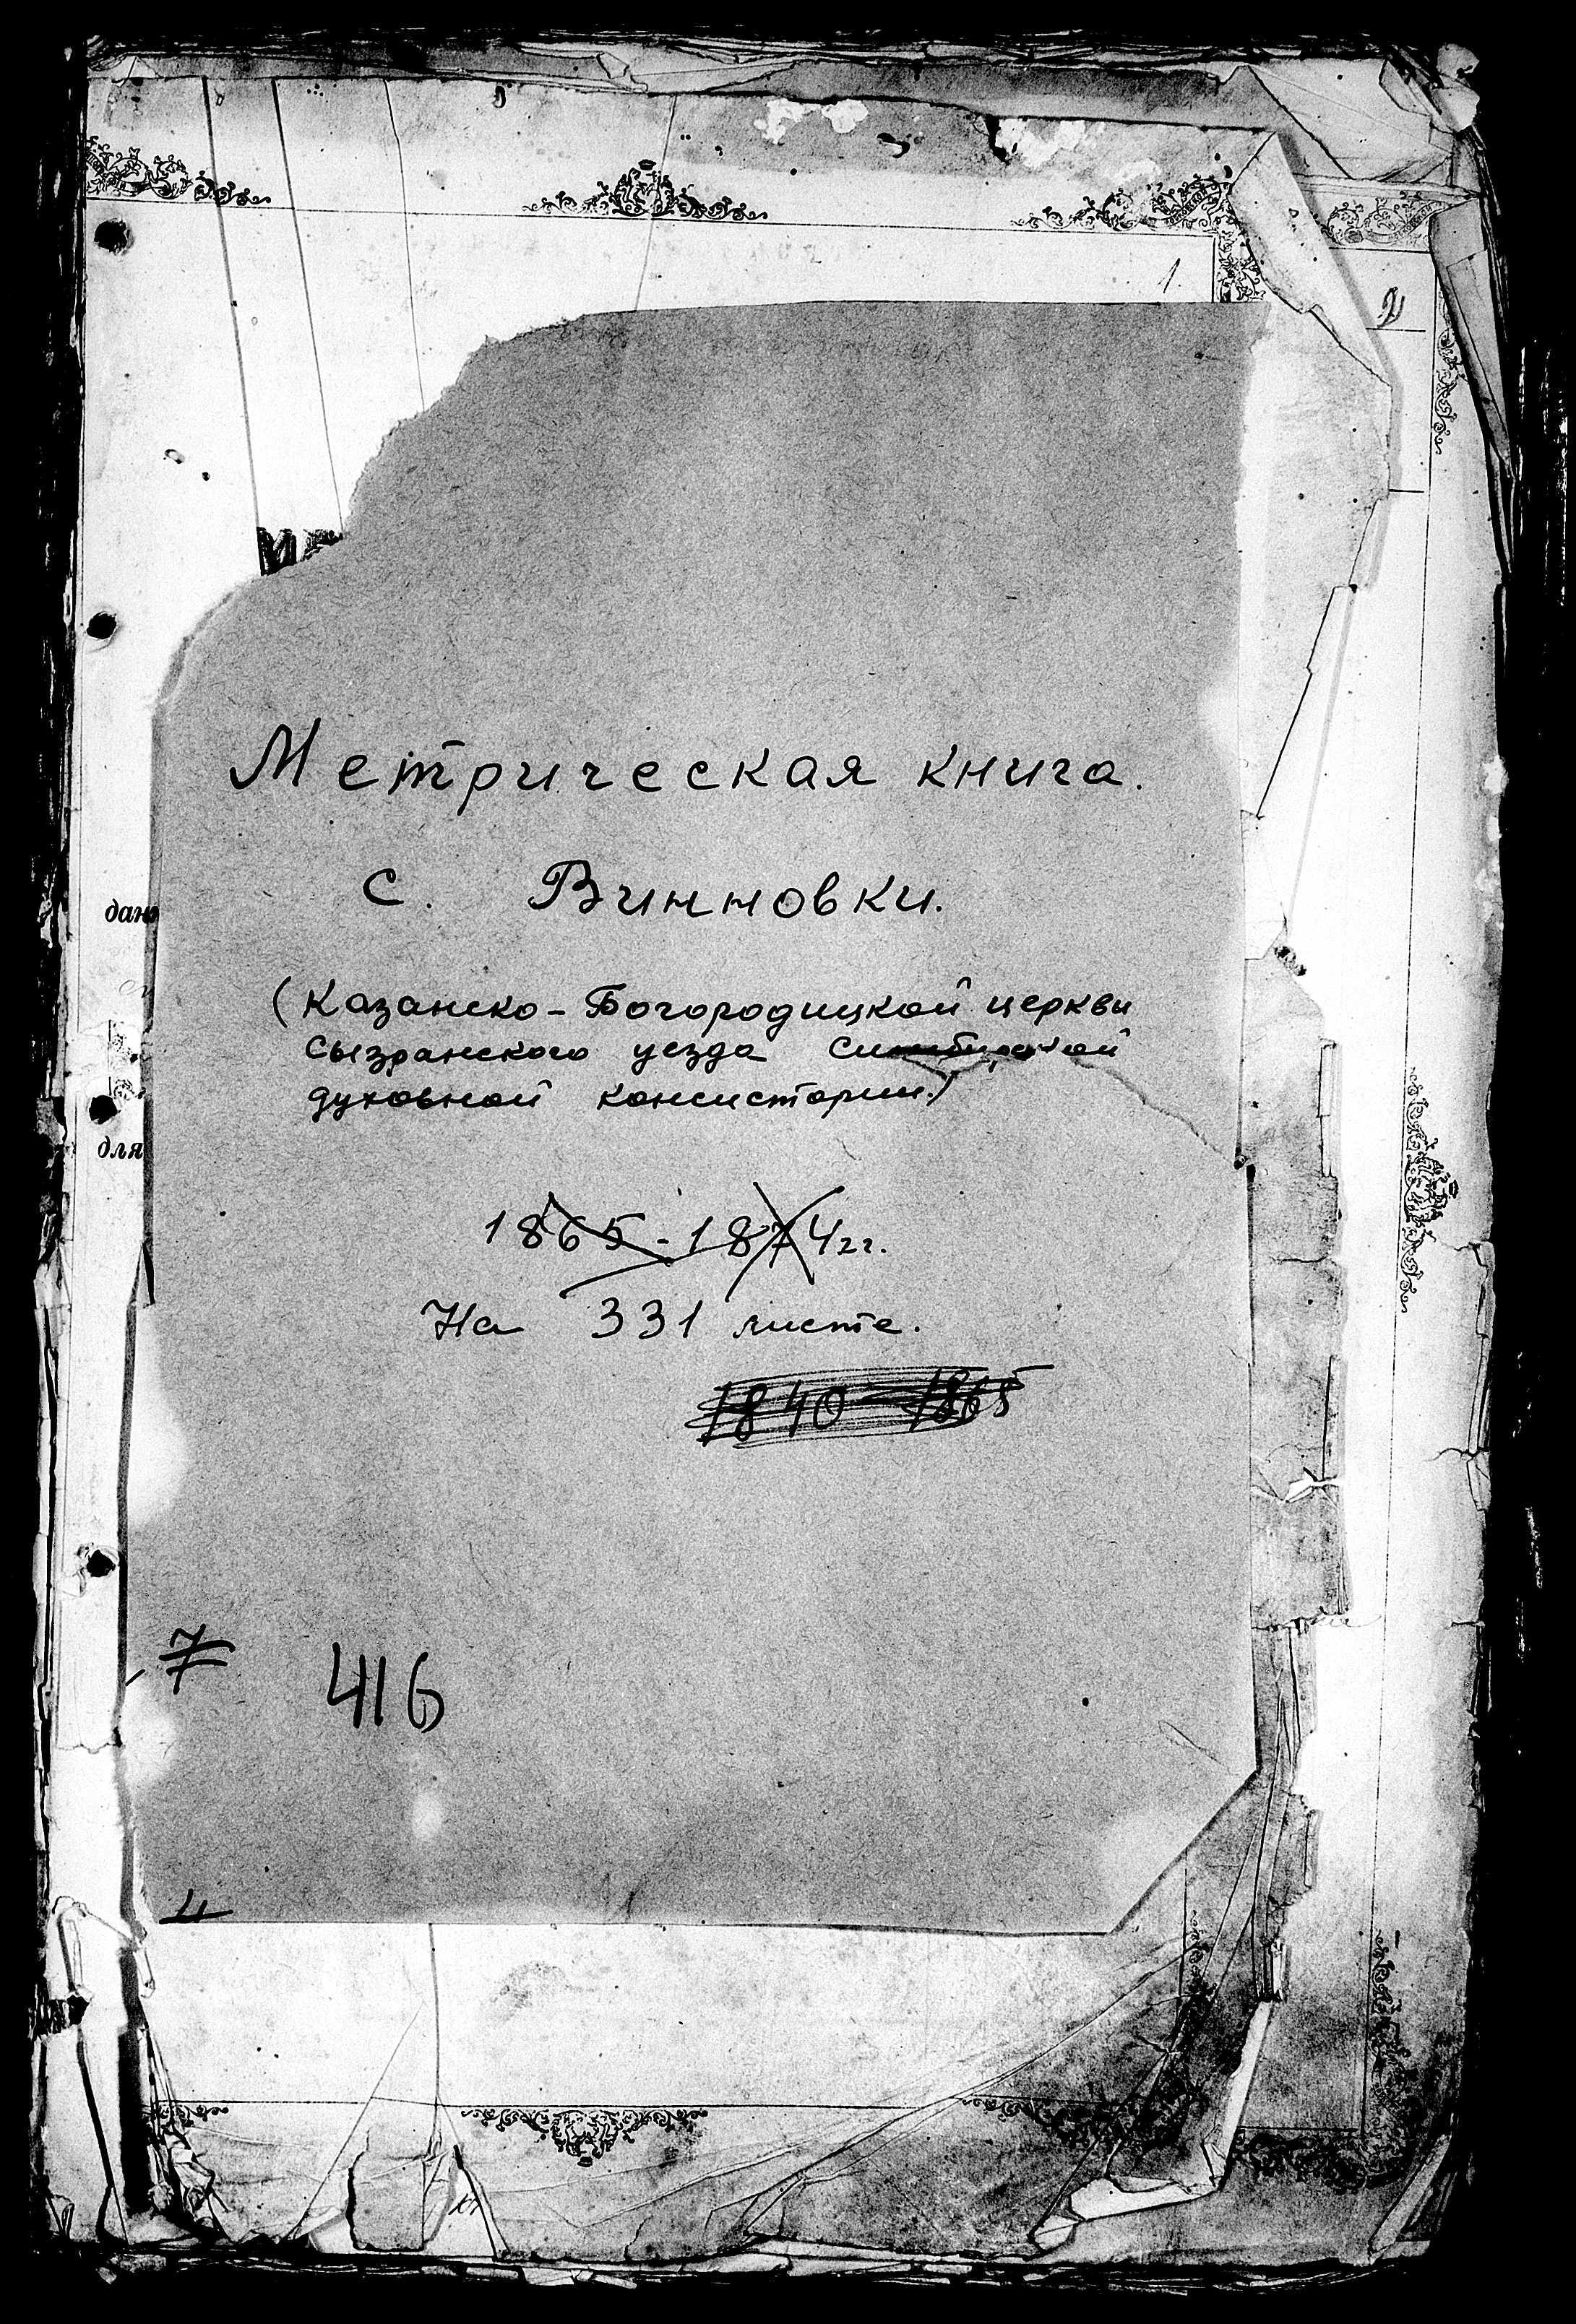 1.
2
Метрическая книга.
с. Винновки.
дан
(Казанско-Богородицкой церкви
Сызранского уезда Симбирской
духовной консистории.)
для
1865-1874гг.
На 331 листе.
1840-1865
7
416